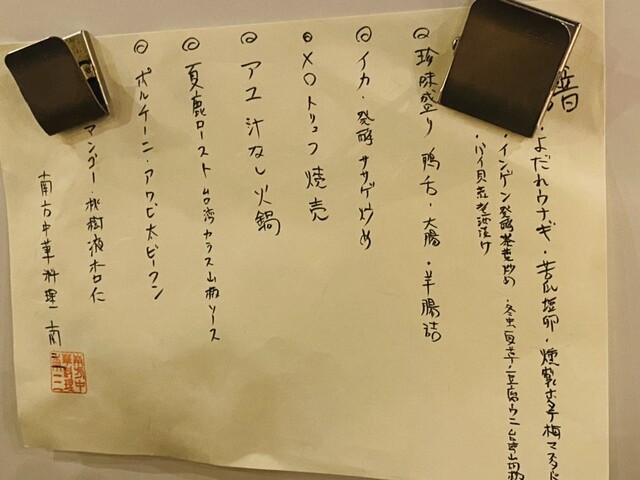 ・よだれウナギ・苦瓜塩卵・燻製ホタテ梅マスタード
・インゲン発酵茶葉炒め・冬虫夏草・豆腐ウニ台湾山椒
・バイ貝
◎珍味盛り 鴨舌・大腸・羊腸詰
◎イカ・発酵ササゲ炒め
◎XOトリュフ焼売
◎アユ汁なし火鍋
◎夏鹿ロースト台湾カラス山椒ソース
◎ポルチーニ・アワビ太ビーフン
マンゴー・桃樹液杏仁
南方中華料理 南